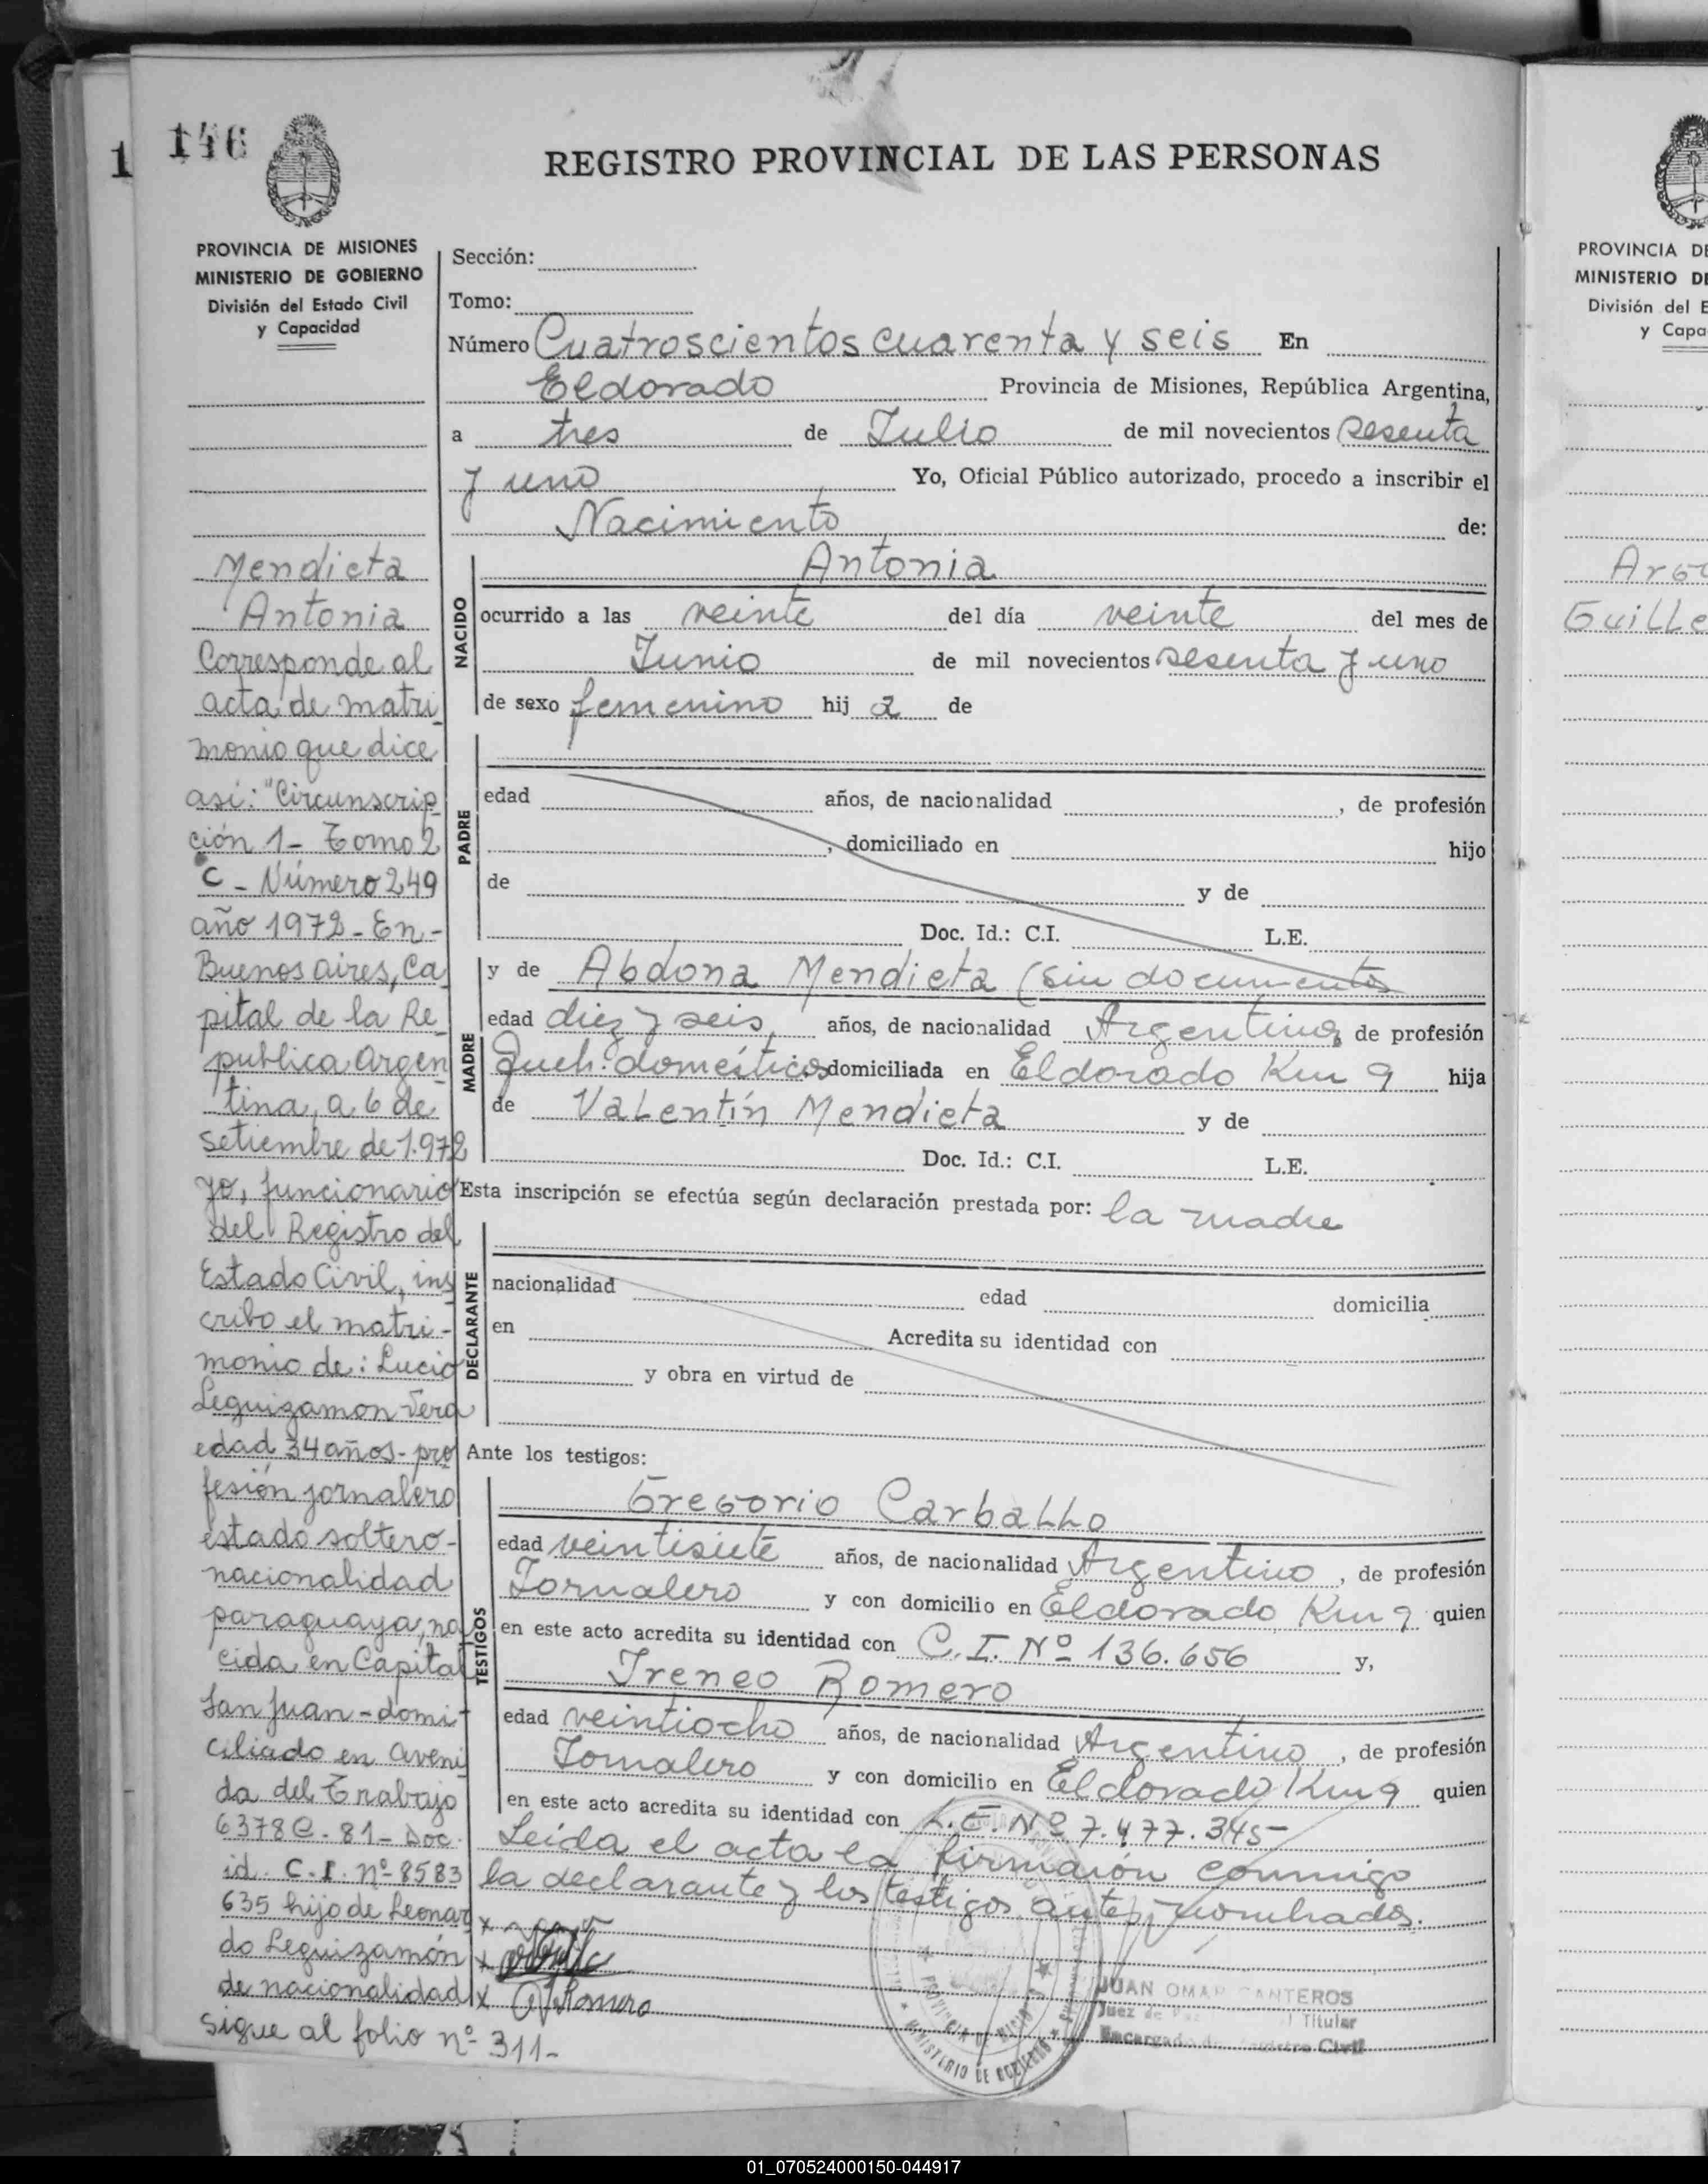 146
1
REGISTRO PROVINCIAL DE LAS PERSONAS
PROVINCIA DE MISIONES
MINISTERIO DE GOBIERNO
División del Estado Civil
y Capacidad
Mendieta
Antonia
Corresponde al
acta de matri
monio que dice
así: "Circunscrip
ción 1- Tomo 2
C - Número 249
año 1972 - En -
Buenos aires, Ca
pital de la Re
publica Argen
tina, a 6 de
setiembre de 1.972
yo, funcionario
del Registro del
Estado Civil, ins
cribo el matri-
monio de: Lucio
Leguizamon Vera
edad 34 años - pro
fesión jornalero
estado soltero -
nacionalidad
paraguaya, na
cida en Capital
San Juan - domi
ciliado en Aveni
da del Trabajo
6378 C. 81 - Doc.
id. C.I. nº 8583
635 hijo de Leonar
do Leguizamón
de nacionalidad
sigue al folio nº 311-
Sección:
Tomo:
Número Cuatroscientos cuarenta y seis En
Eldorado Provincia de Misiones, República Argentina,
a tres de Julio de mil novecientos sesenta
y uno Yo, Oficial Público autorizado, procedo a inscribir el
Nacimiento de:
NACIDO
Antonia
ocurrido a las veinte del día veinte del mes de
Junio de mil novecientos sesenta y uno
de sexo femenino hij a de
PADRE
edad años, de nacionalidad , de profesión
, domiciliado en hijo
de y de
Doc. Id.: C.I. L.E.
MADRE
y de Abdona Mendieta (sin documentos
edad diez y seis años, de nacionalidad Argentina, de profesión
Queh. domésticos domiciliada en Eldorado Km 9 hija
de Valentín Mendieta y de
Doc. Id.: C.I. L.E.
Esta inscripción se efectúa según declaración prestada por: la madre
DECLARANTE
nacionalidad edad domicilia
en Acredita su identidad con
y obra en virtud de
Ante los testigos:
TESTIGOS
Gregorio Carballo
edad veintisiete años, de nacionalidad Argentino, de profesión
Jornalero y con domicilio en Eldorado Km 9 quien
en este acto acredita su identidad con C.I. Nº 136.656 y,
Ireneo Romero
edad veintiocho años, de nacionalidad Argentino, de profesión
Jornalero y con domicilio en Eldorado Km 9 quien
en este acto acredita su identidad con L.E. Nº 7.477.345-
Leída el acta la firmarón conmigo
la declarante y los testigos antes nombrados.
x
x
x Romero
PROVINCIA DE MISIONES
MINISTERIO DE GOBIERNO
JUAN OMAR CANTEROS
Juez de Paz Titular
Encargado del Registro Civil
PROVINCIA DE
MINISTERIO DE
División del E
y Capa
Guille
01_070524000150-044917